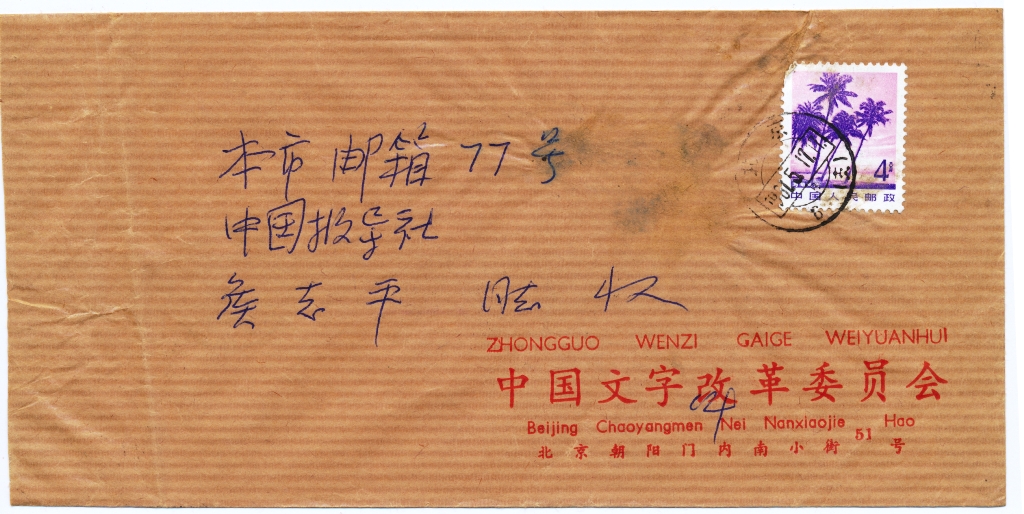 本市邮箱 77 号
中国报导社
侯志平 同志 收
4分
中国人民邮政
北京
ZHONGGUO WENZI GAIGE WEIYUANHUI
中国文字改革委员会
Beijing Chaoyangmen Nei Nanxiaojie 51 Hao
北京朝阳门内南小街 号